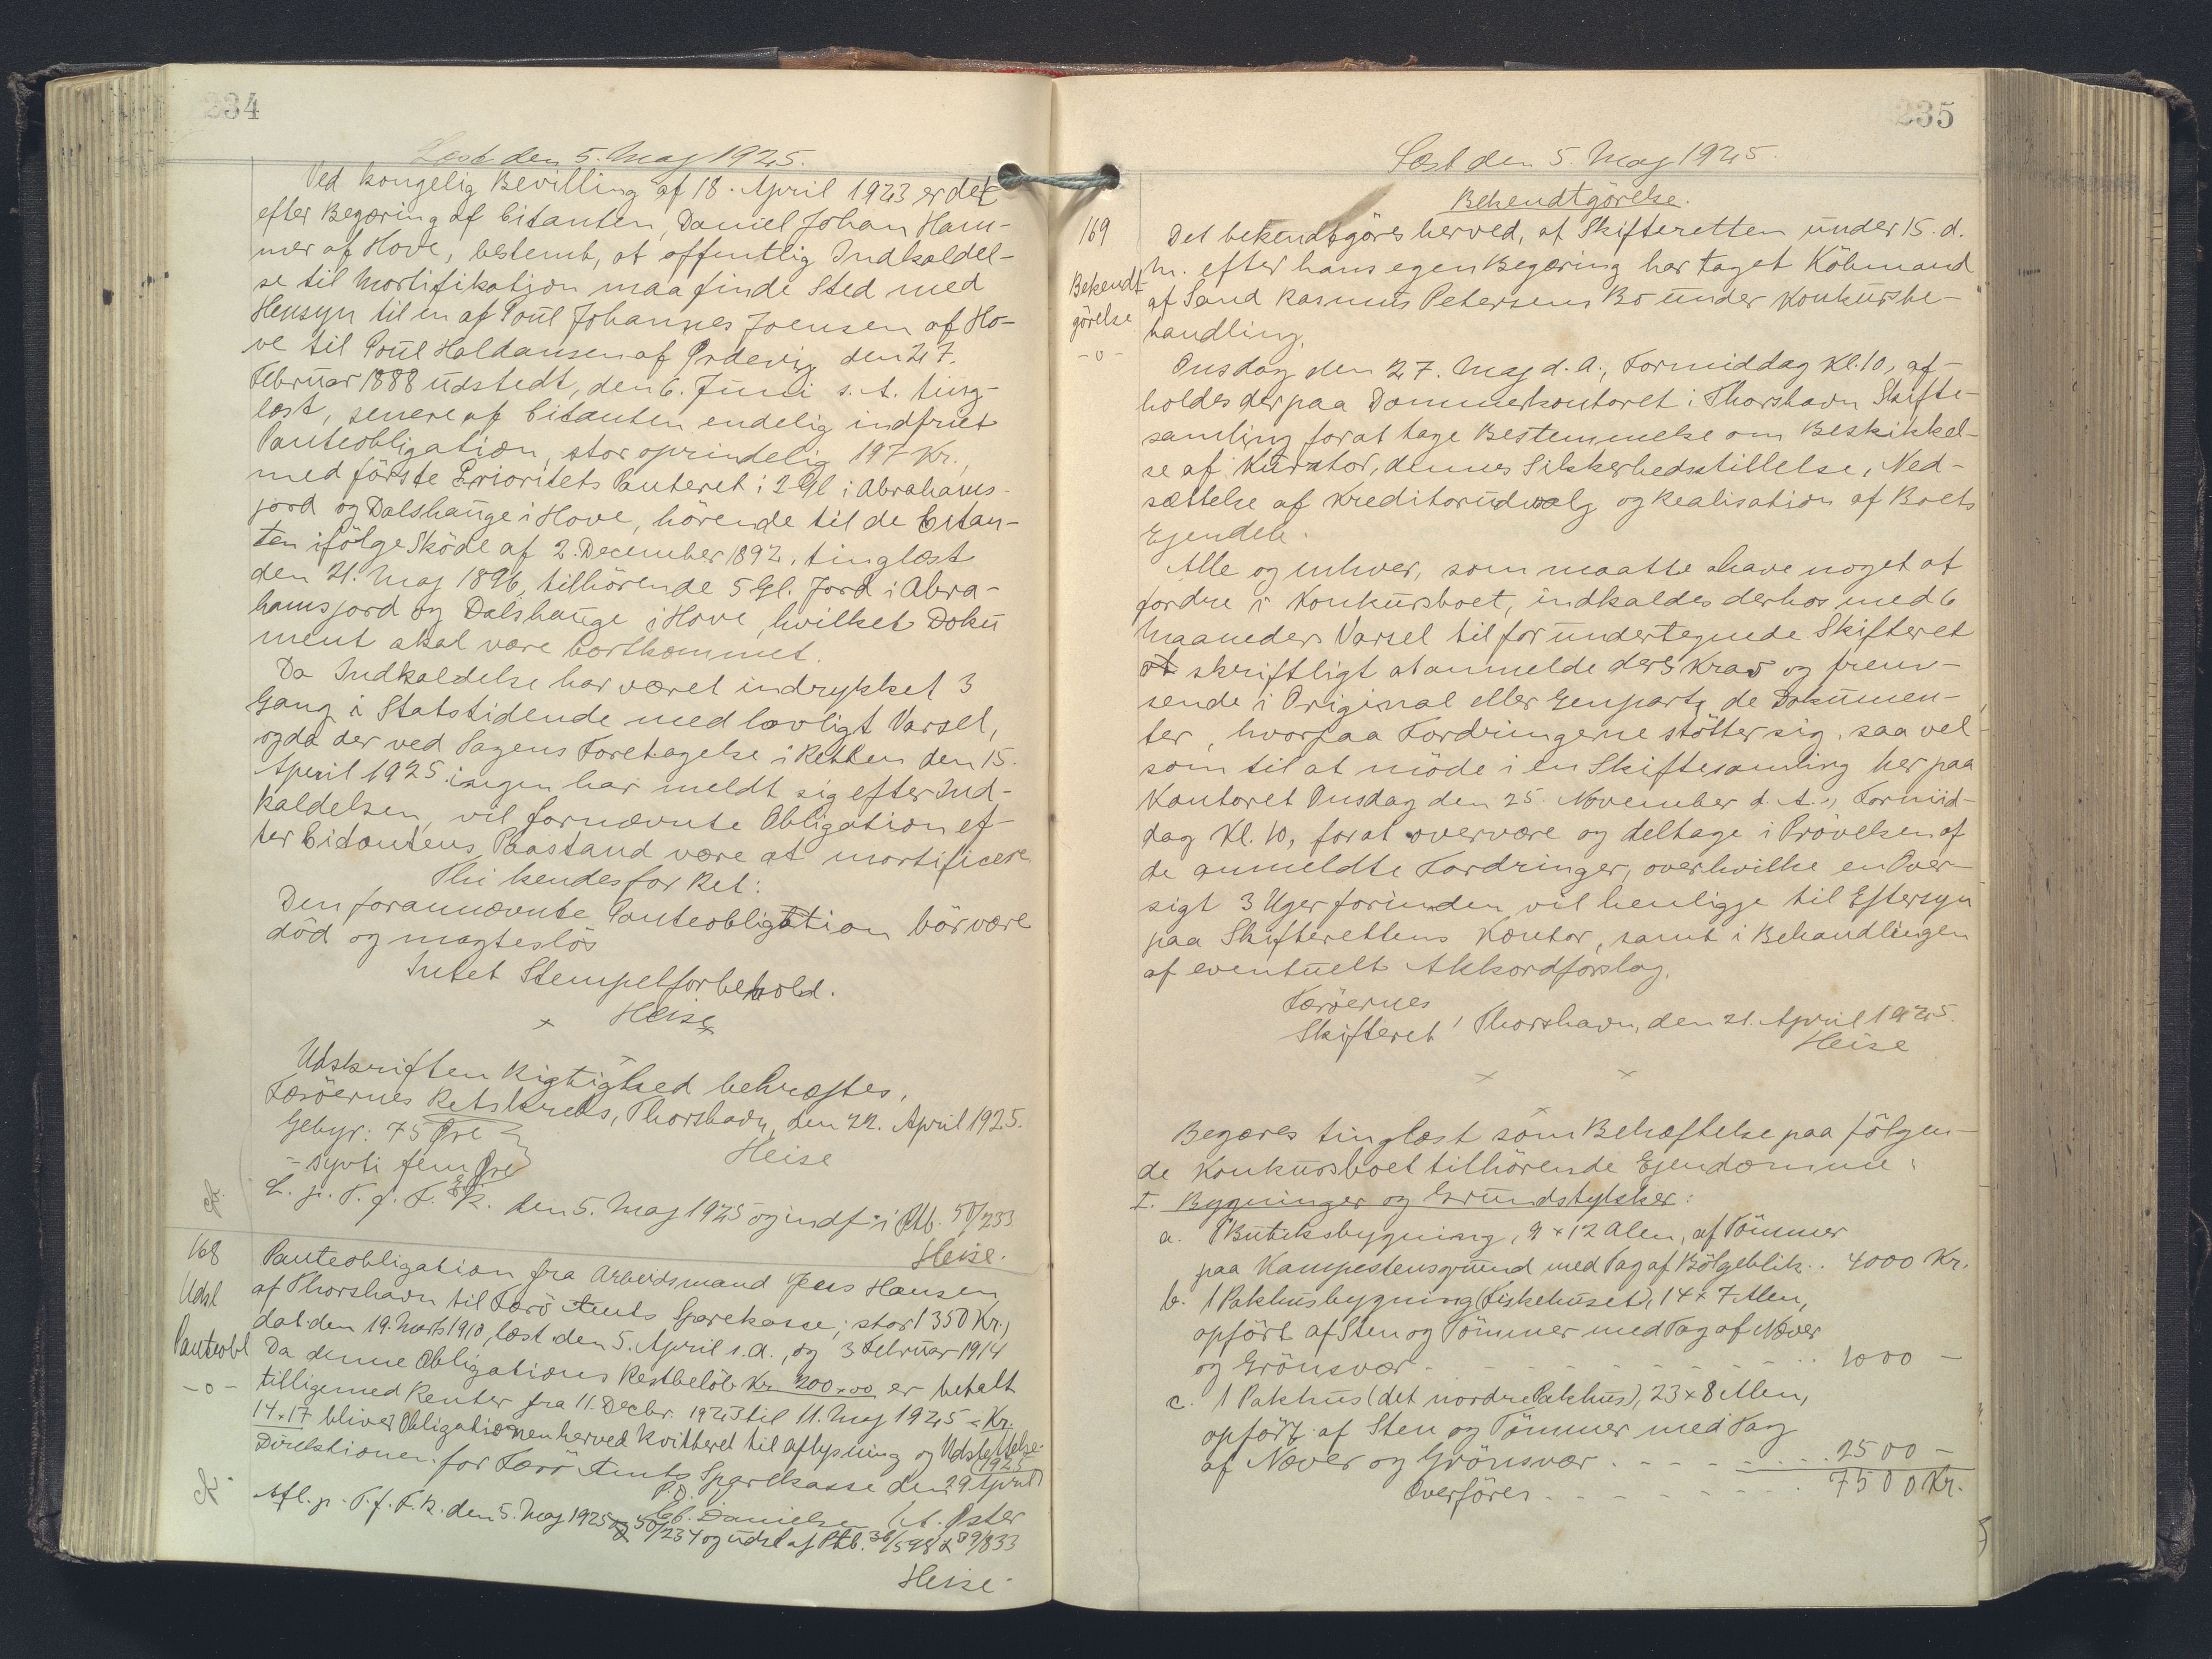 234
Læst den 5. Maj 1925.
Ved kongelig Bevilling af 18. April 1923 er det
efter Begæring af Citanten, Daniel Johan Ham-
mer af Hove, bestemt, at offentlig Indkaldel-
se til Mortifikation maa finde Sted med
Hensyn til en af Poul Johannes Joensen af Ho-
ve til Poul Haldansen af Pordevig den 27.
Februar 1888 udstedt, den 6. Juni s. A. ting-
læst, senere af Citanten endelig indfriet
Panteobligation, stor oprindelig 197 Kr.,
med förste Prioritets Panteret i 2 Gl i Abrahams-
jord og Dalshauge i Hove, hörende til de Citan-
ten ifölge Sköde af 2. December 1892, tinglæst
den 21. Maj 1896, tilhörende 5 Gl. Jord i Abra-
hamsjord og Dalshauge i Hove, hvilket Doku
ment skal være bortkommet.
Da Indkaldelse har været indrykket 3
Gang i Statstidende med lovligt Varsel,
og da der ved Sagens Foretagelse i Retten den 15.
April 1925 ingen har meldt sig efter Ind-
kaldelsen, vil fornævnte Obligation ef-
ter Citantens Paastand være at mortificere
Thi kendes for Ret:
Den forannævnte Panteobligation bör være
död og magteslös
Intet Stempelforbehold.
Heise
Udskriften Rigtighed bekræftes,
Færöernes Retskreds, Thorshavn, den 22. April 1925.
Gebyr: 75 Øre
= syvti fem Øre
Heise
L. p. T. f. F. R. den 5. Maj 1925 og indf. i Ptb. 50/233
Heise.
168
Udsl
Panteobl
-o-
Panteobligation fra Arbeidsmand Jens Hansen
af Thorshavn til Færö Amts Sparekasse, stor 1350 Kr.,
dat. den 19. Marts 1910, læst den 5. April s. A., og 3 Februar 1914
Da denne Obligations Restbelöb Kr. 200.00 er betalt
tilligemed Renter fra 11. Decbr. 1923 til 11. Maj 1925 = Kr.
14.17 bliver Obligationen herved kvitteret til Aflysning og Udslettelse.
Direktionen for Færö Amts Sparekasse den 29 April 1925
P. D.
Danielsen A. Øster
Afl. p. T. f. F. R. den 5. Maj 1925 50/234 og udsl af Ptb. 36/598 & 39/833
Heise
235
Læst den 5. Maj 1925.
Bekendtgörelse.
169
Bekendt-
görelse
-o-
Det bekendtgöres herved, at Skifteretten under 15. d.
M. efter hans egen Begæring har taget Köbmand
af Sand Rasmus Petersens Bo under Konkursbe-
handling.
Onsdag den 27. Maj d. A., Formiddag Kl. 10, af-
holdes der paa Dommerkontoret i Thorshavn Skifte-
samling for at tage Bestemmelse om Beskikkel-
se af Kurator, dennes Sikkerhedsstillelse, Ned-
sættelse af Kreditorudvalg og Realisation af Boets
Ejendele.
Alle og enhver, som maatte have noget at
fordre i Konkursboet, indkaldes derhos med 6
Maaneders Varsel til for undertegnede Skifteret
at skriftligt at anmelde deres Krav og frem-
sende i Original eller Genpart, de Dokumen-
ter, hvorpaa Fordringerne stötter sig, saa vel
som til at möde i en Skiftesamling her paa
Kontoret Onsdag den 25. November d. A., Formid-
dag Kl. 10, for at overvære og deltage i Prövelsen af
de anmeldte Fordringer, over hvilke en Over-
sigt 3 Uger forinden vil henligge til Eftersyn
paa Skifterettens Kontor, samt i Behandlingen
af eventuelt Akkordforslag.
Færöernes
Skifteret, Thorshavn, den 21. April 1925.
Heise
Begæres tinglæst som Behæftelse paa fölgen-
de Konkursboet tilhörende Ejendomme:
I. Bygninger og Grundstykker:
a. 1 Butiksbygning, 9 x 12 Alen, af Tömmer
paa Kampestensgrund med Tag af Bölgeblik.. 4000 Kr.
b. 1 Pakhusbygning (Fiskehuset), 14 x 7 Alen,
opfört af Sten og Tömmer med Tag af Næver
og Grönsvær - - - 1000 -
c. 1 Pakhus (det nordre Pakhus), 23 x 8 Alen,
opfört af Sten og Tömmer med Tag
af Næver og Grönsvær . - - - 2500 -
Overföres - - - 7500 Kr.